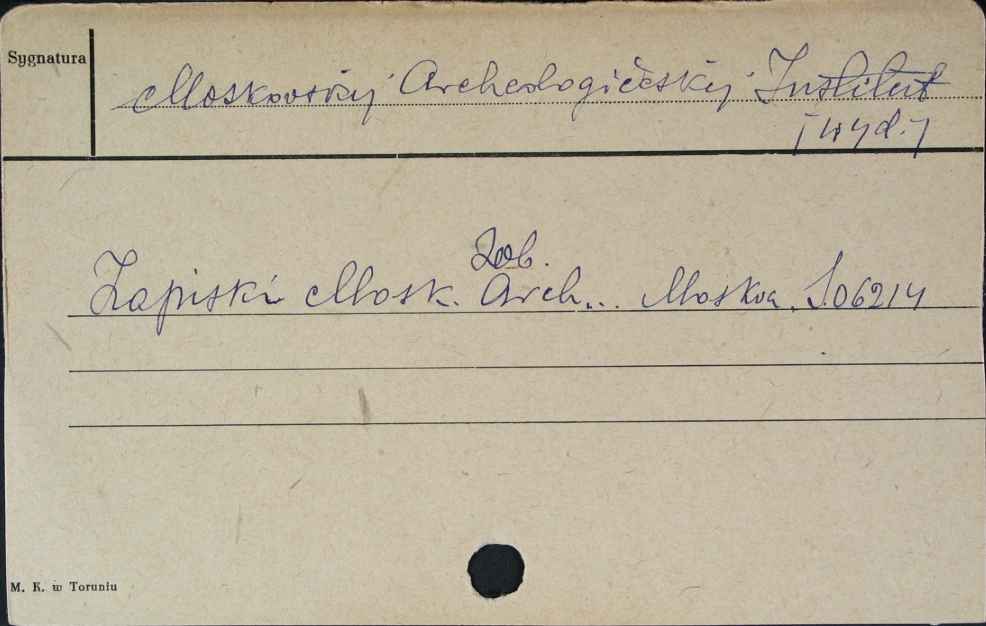 Sygnatura
Moskovskij Archeologičeskij Institut
[wyd.]
Zob.
Zapiski Mosk. Arch... Moskva. S.06214
M. K. w Toruniu